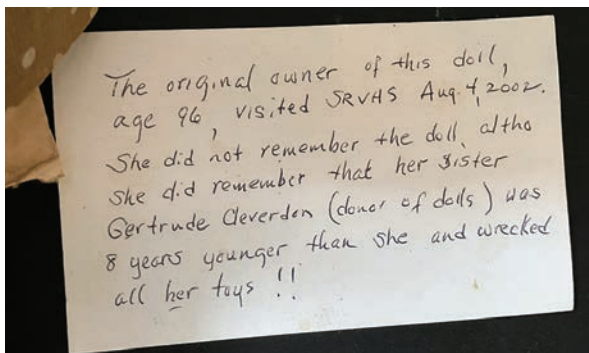 The original owner of this doll,
age 96, visited SRVHS Aug. 4, 2002.
She did not remember the doll, altho
she did remember that her sister
Gertrude Cleverdon (donor of dolls) was
8 years younger than she and wrecked
all her toys !!